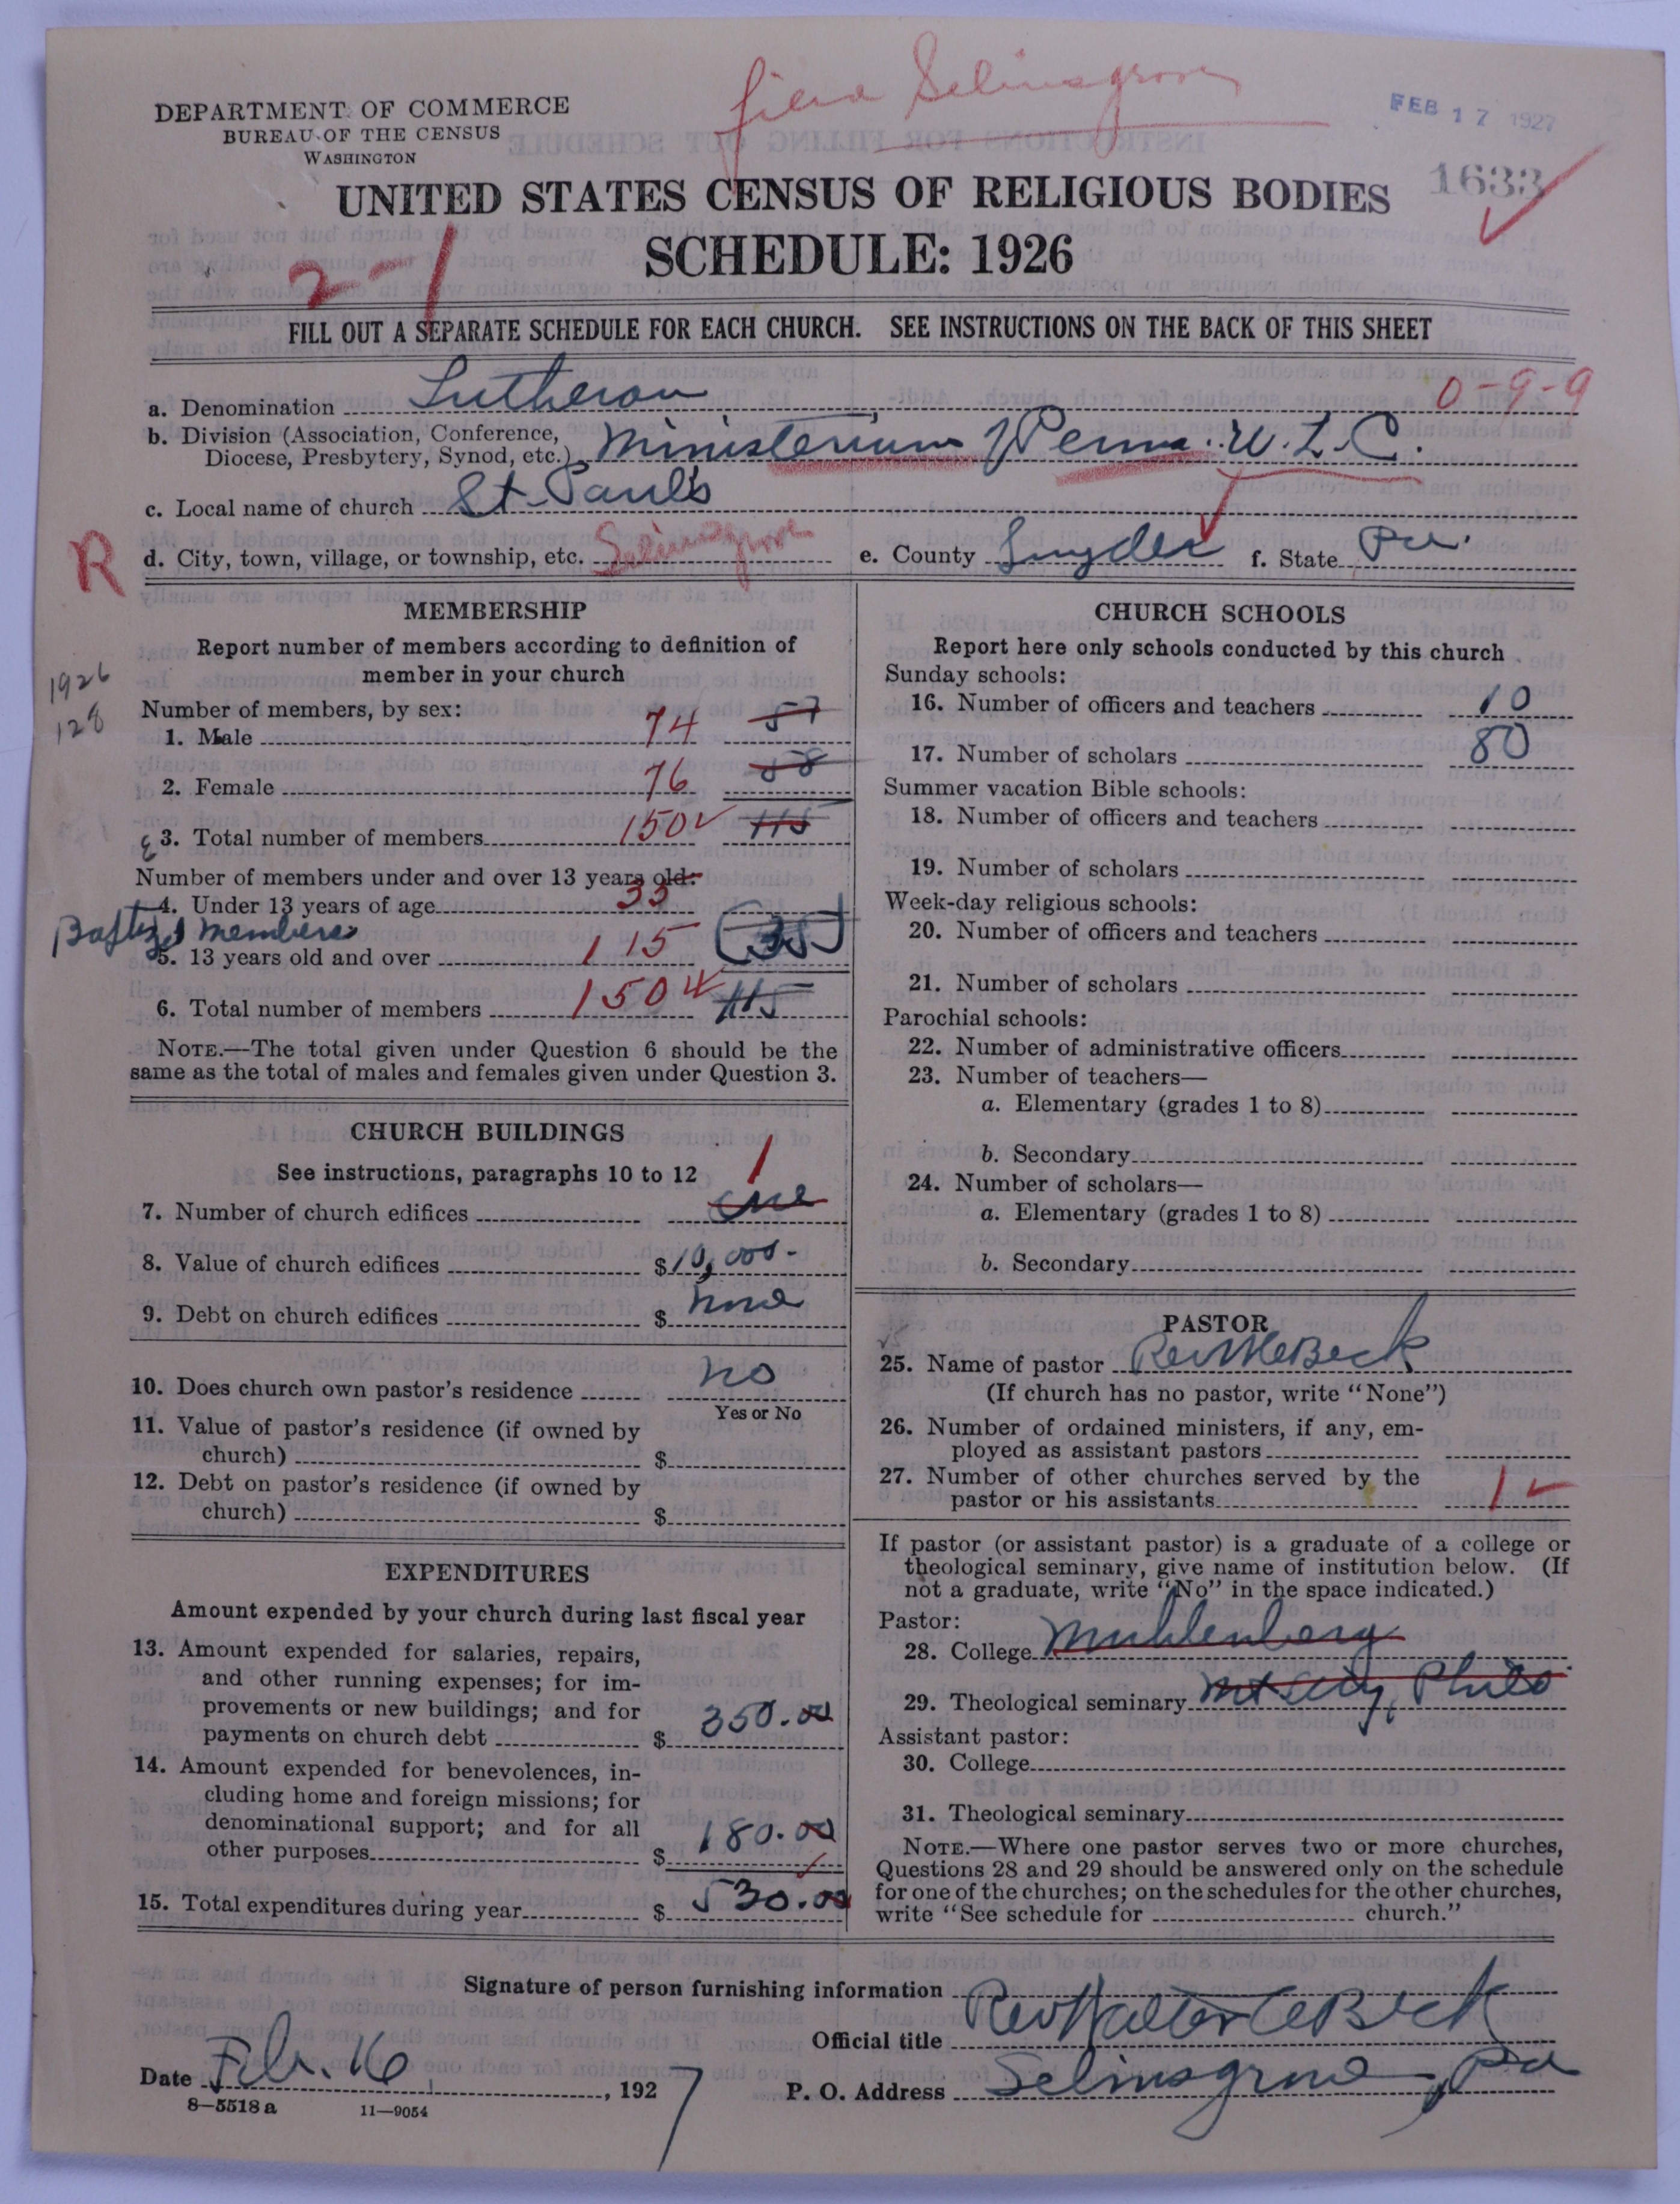 filed Selinsgrove
FEB 17 1927
DEPARTMENT OF COMMERCE
BUREAU OF THE CENSUS
WASHINGTON
1633
UNITED STATES CENSUS OF RELIGIOUS BODIES
SCHEDULE: 1926
2-1
FILL OUT A SEPARATE SCHEDULE FOR EACH CHURCH. SEE INSTRUCTIONS ON THE BACK OF THIS SHEET
a. Denomination Lutheran 0-9-9
b. Division (Association, Conference,
Diocese, Presbytery, Synod, etc.) Ministerium of Penna. U. L. C.
c. Local name of church St. Paul's
R d. City, town, village, or township, etc. Selinsgrove e. County Snyder f. State Pa.
MEMBERSHIP
Report number of members according to definition of
member in your church
1926
128
Number of members, by sex:
1. Male 74 57
2. Female 76 58
3. Total number of members 150 115
Number of members under and over 13 years old:
4. Under 13 years of age 35
Baptized members
5. 13 years old and over 115 (35)
6. Total number of members 150 115
NOTE.—The total given under Question 6 should be the
same as the total of males and females given under Question 3.
CHURCH BUILDINGS
See instructions, paragraphs 10 to 12 1
7. Number of church edifices one
8. Value of church edifices $10,000.-
9. Debt on church edifices $ none
10. Does church own pastor's residence no
Yes or No
11. Value of pastor's residence (if owned by
church) $
12. Debt on pastor's residence (if owned by
church) $
EXPENDITURES
Amount expended by your church during last fiscal year
13. Amount expended for salaries, repairs,
and other running expenses; for im-
provements or new buildings; and for
payments on church debt $ 350.00
14. Amount expended for benevolences, in-
cluding home and foreign missions; for
denominational support; and for all
other purposes $ 180.00
15. Total expenditures during year $ 530.00
CHURCH SCHOOLS
Report here only schools conducted by this church
Sunday schools:
16. Number of officers and teachers 10
17. Number of scholars 80
Summer vacation Bible schools:
18. Number of officers and teachers
19. Number of scholars
Week-day religious schools:
20. Number of officers and teachers
21. Number of scholars
Parochial schools:
22. Number of administrative officers
23. Number of teachers—
a. Elementary (grades 1 to 8)
b. Secondary
24. Number of scholars—
a. Elementary (grades 1 to 8)
b. Secondary
PASTOR
25. Name of pastor Rev W C Beck
(If church has no pastor, write "None")
26. Number of ordained ministers, if any, em-
ployed as assistant pastors
27. Number of other churches served by the
pastor or his assistants 1
If pastor (or assistant pastor) is a graduate of a college or
theological seminary, give name of institution below. (If
not a graduate, write "No" in the space indicated.)
Pastor:
28. College Muhlenberg
29. Theological seminary Mt Airy, Phila
Assistant pastor:
30. College
31. Theological seminary
NOTE.—Where one pastor serves two or more churches,
Questions 28 and 29 should be answered only on the schedule
for one of the churches; on the schedules for the other churches,
write "See schedule for church."
Signature of person furnishing information Rev Walter C Beck
Official title
Date Feb. 16, 1927 P. O. Address Selinsgrove, Pa
8—5518 a 11—9054